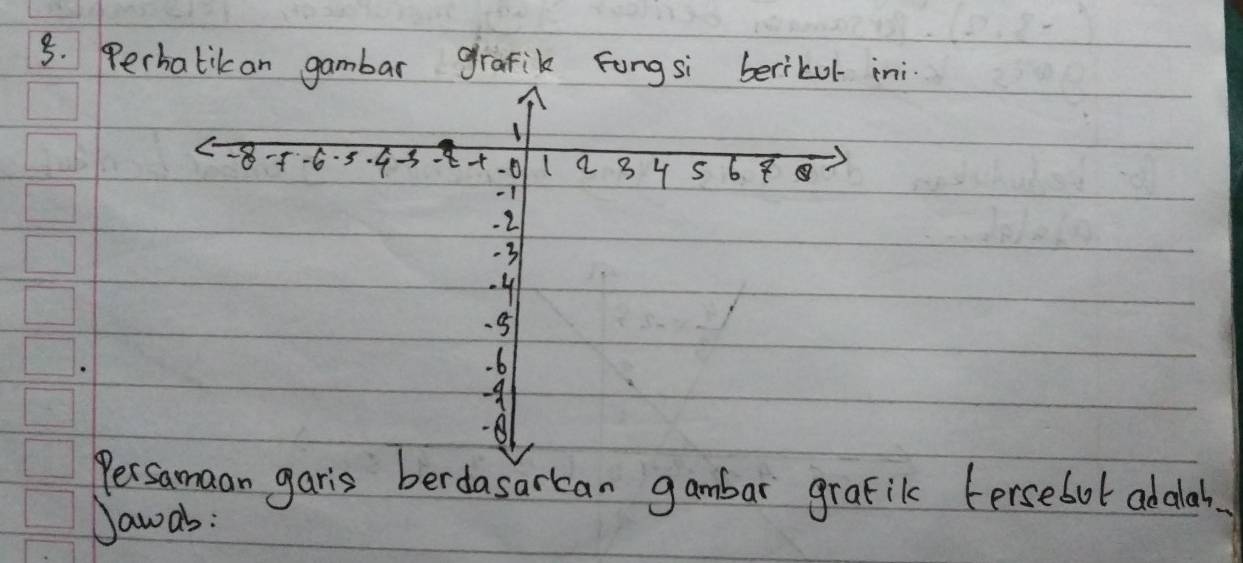 3. Perhatikan gambar grafik fungsi berikut ini.
1
-8 -7 -6 -5 -4 -3 -2 -1 -0 1 2 3 4 5 6 7 8
-1
-2
-3
-4
-5
-6
-7
-8
Persamaan garis berdasarkan gambar grafik tersebut adalah...
Jawab: